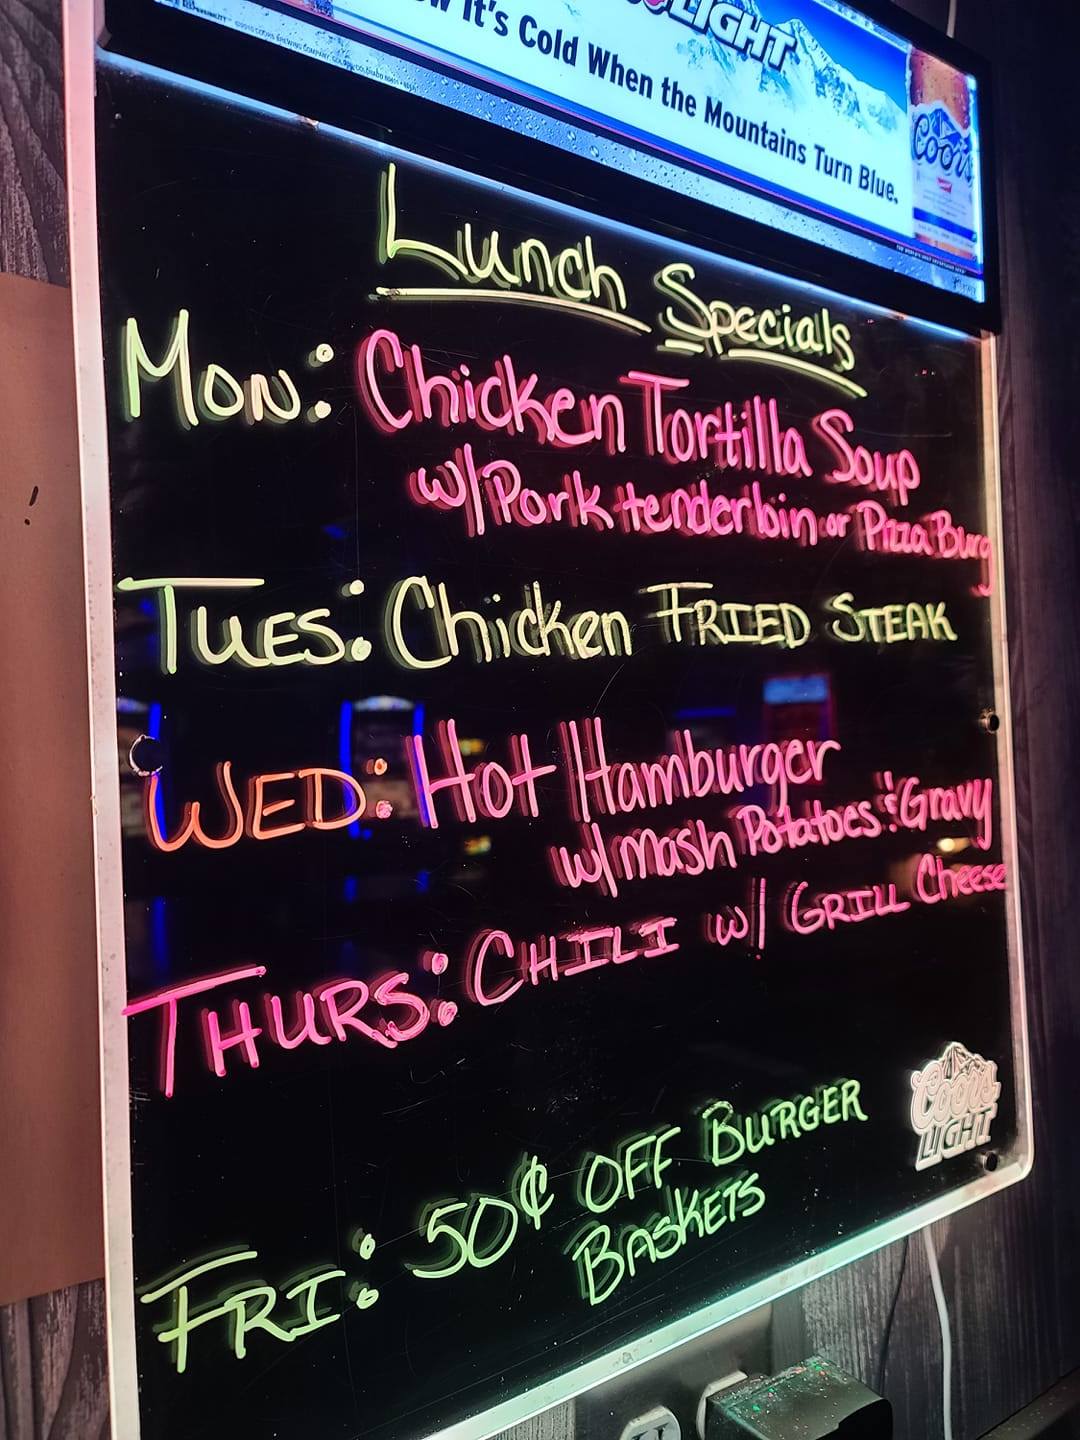 LIGHT
It's Cold When the Mountains Turn Blue.
Coors
Lunch Specials
Mon: Chicken Tortilla Soup
w/Pork tenderloin or Pizza Burg
Tues: Chicken Fried Steak
Wed: Hot Hamburger
w/ mash Potatoes & Gravy
Thurs: Chili w/ Grill Cheese
Coors
LIGHT
Fri: 50¢ OFF Burger
Baskets